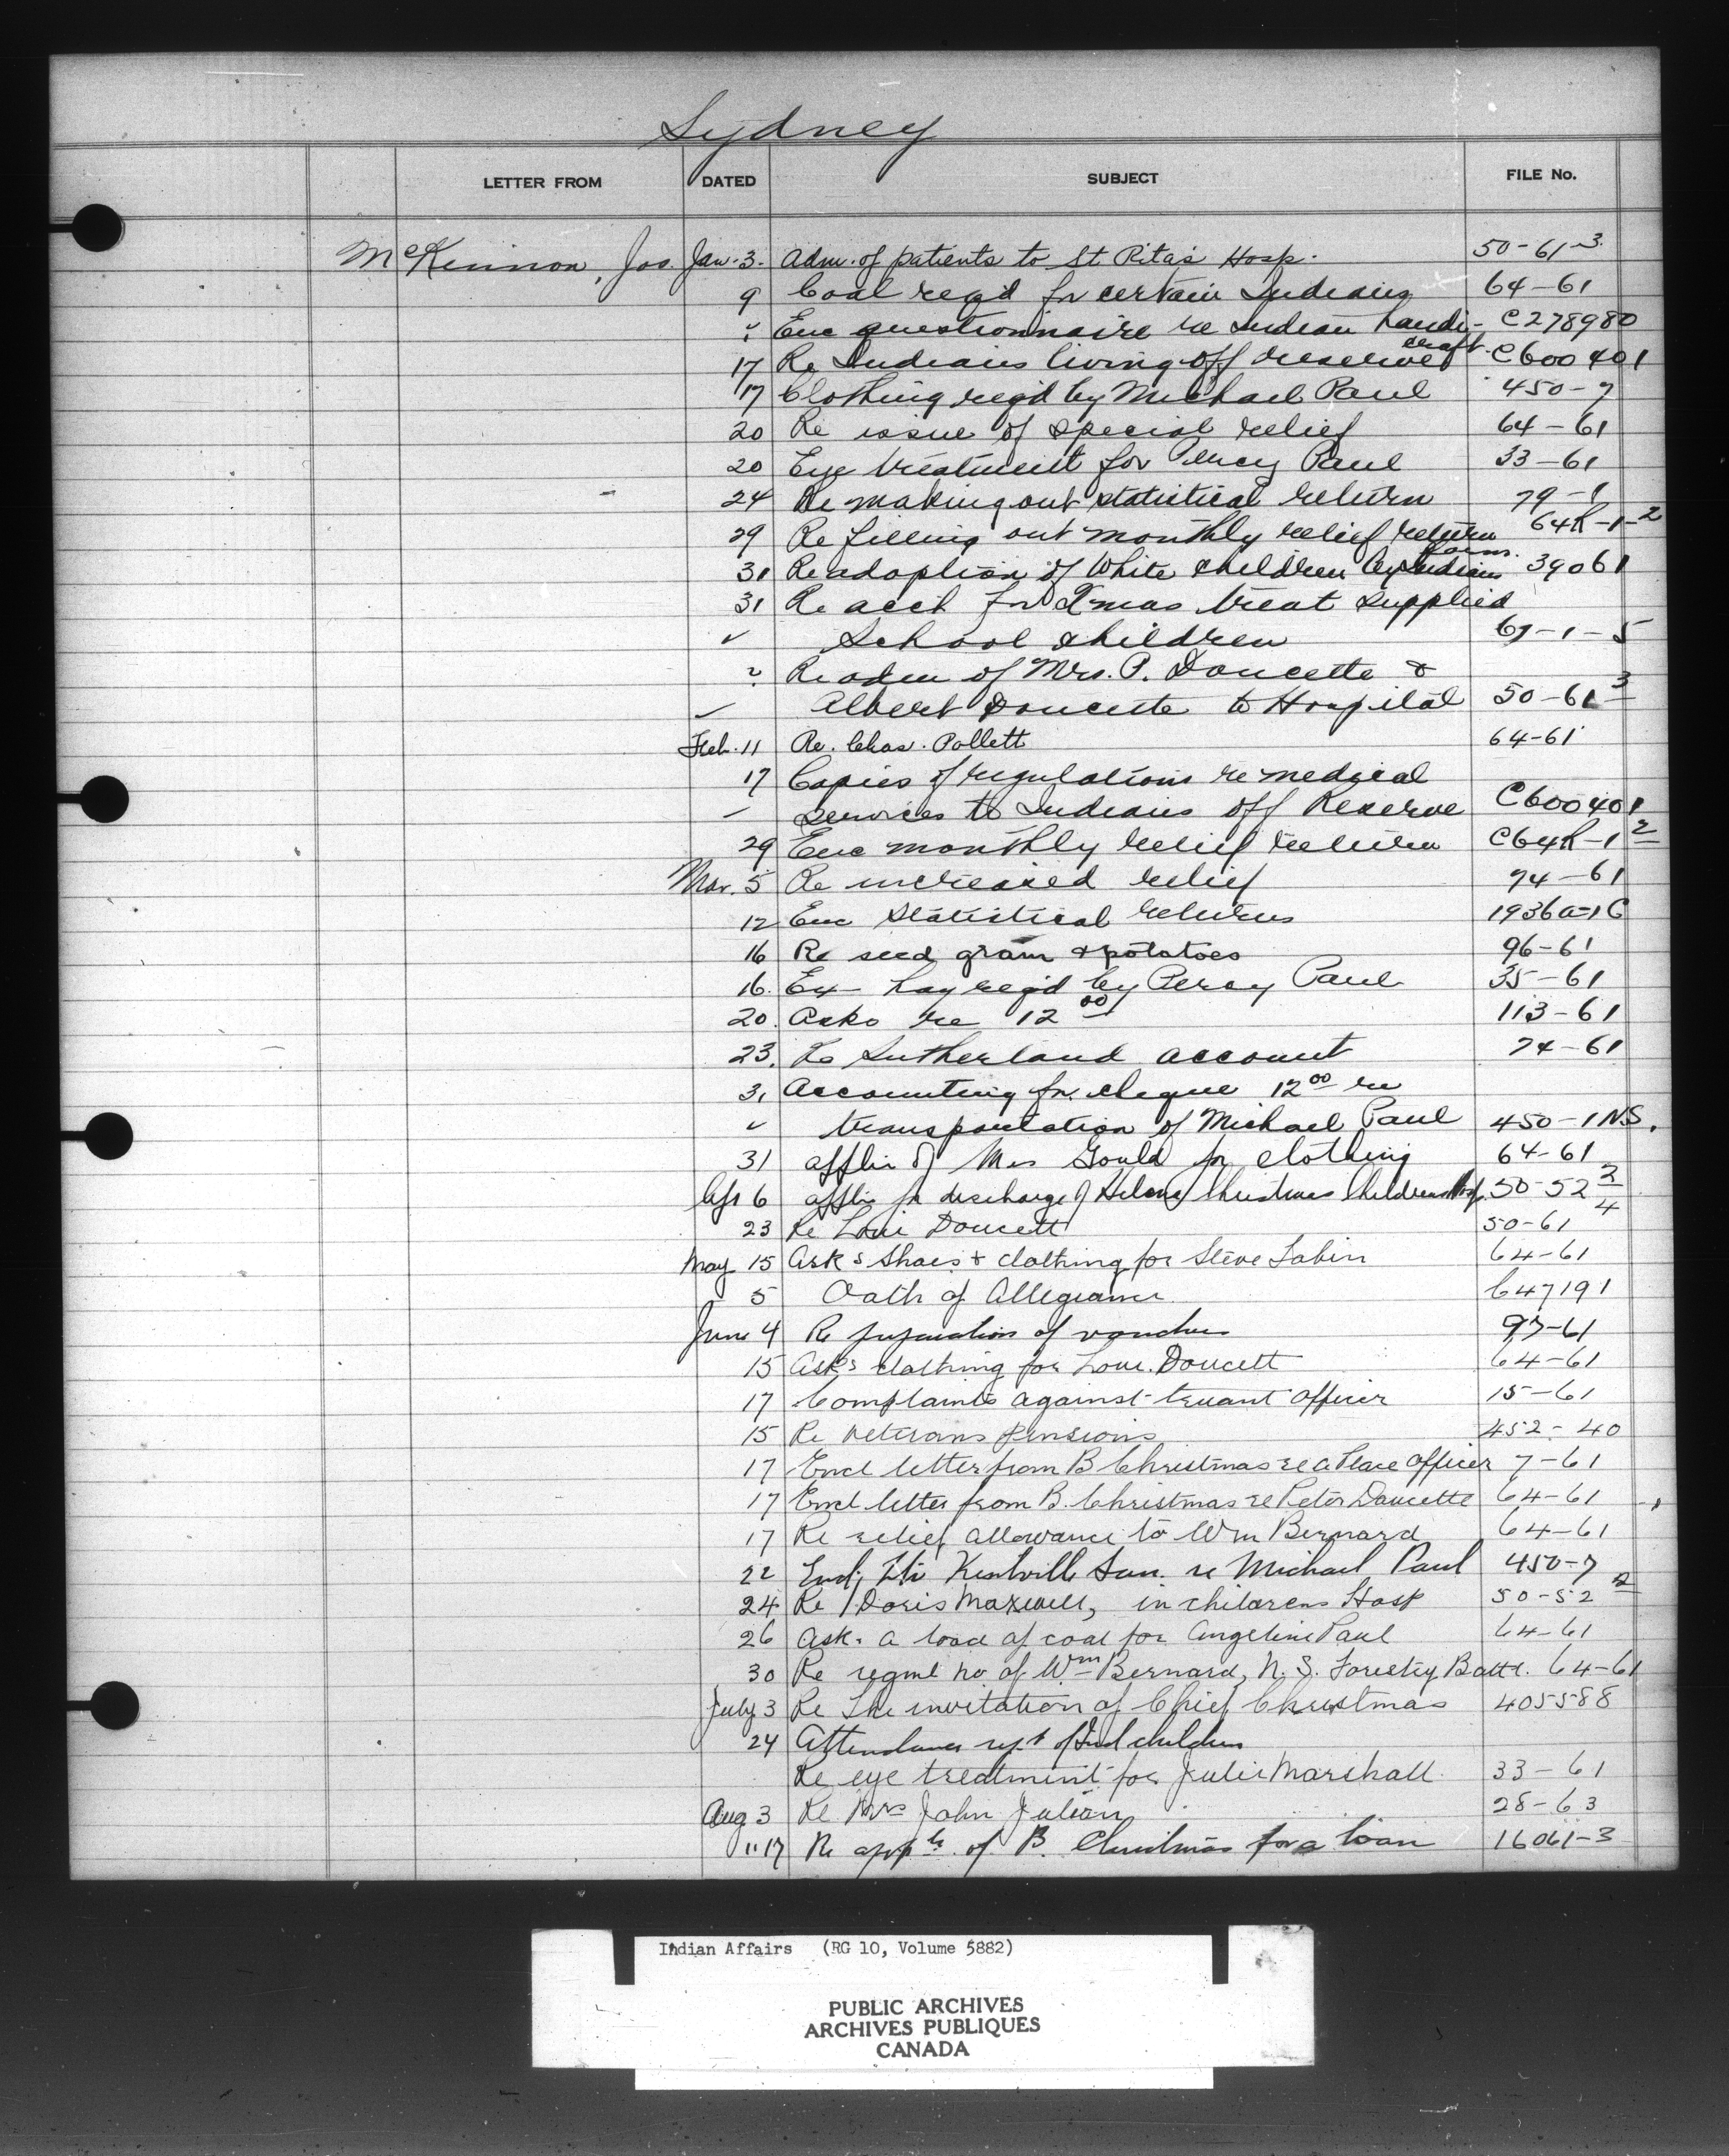 Sydney
LETTER FROM DATED SUBJECT FILE No.
McKinnon, Jos. Jan. 3. Adm. of patients to St Rita's Hosp. 50-61-3
9 Coal req'd for certain Indians 64-61
" Enc questionnaire re Indian handi- C278980
craft.
17 Re Indians living off reserve C600401
17 Clothing req'd by Michael Paul 450-7
20 Re issue of special relief 64-61
20 Eye treatment for Percy Paul 33-61
24 Re making out statistical return 79-1
29 Re filling out monthly relief return 64R-1-2
forms.
31 Re adoption of White children by Indians 39061
31 Re acct for Xmas treat supplied
" School children 61-1-5
" Re adm of Mrs. P. Doucette &
" Albert Doucette to Hospital 50-61 3
Feb. 11 Re. Chas. Pollett 64-61
17 Copies of regulations re medical
" services to Indians off Reserve C600401
29 Enc monthly relief return C64R-1 2
Mar. 5 Re increased relief 74-61
12 Enc Statistical returns 1936a-1C
16 Re seed grain & potatoes 96-61
16. Ex hay req'd by Percy Paul 35-61
20. Asks re 12 00 113-61
23. Re Sutherland account 74-61
31 Accounting for cheque 12 00 re
" transportation of Michael Paul 450-1NS.
31 applic of Mrs Gould for clothing 64-61
Apr 6 applic for discharge of Helena Christmas Childrens Hosp. 50-52 2/4
23 Re Loui Doucett 50-61
May 15 Asks Shoes & clothing for Steve Labin 64-61
5 Oath of Allegiance 647191
June 4 Re preparation of vouchers 97-61
15 Asks clothing for Loui. Doucett 64-61
17 Complaints against truant officer 15-61
15 Re veterans pensions 452-40
17 Encl letter from B Christmas re a Peace Officer 7-61
17 Encl letter from B. Christmas re Peter Doucette 64-61
17 Re relief allowance to Wm Bernard 64-61
22 Encl, ltr Kentville San. re Michael Paul 450-7
24 Re Doris Maxwell, in childrens Hosp 50-52 2
26 Ask. a load of coal for Angeline Paul 64-61
30 Re regml no of Wm Bernard, N.S. Forestry Battl. 64-61
July 3 Re the invitation of Chief Christmas 405588
24 Attendance rept of Ind children
Re eye treatment for Julie Marshall 33-61
Aug 3 Re Mrs John Julian 28-63
" 17 Re appli. of B. Christmas for a loan 16061-3
Indian Affairs (RG 10, Volume 5882)
PUBLIC ARCHIVES
ARCHIVES PUBLIQUES
CANADA